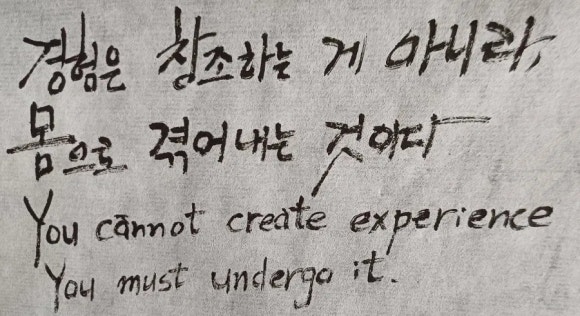 경험은 창조하는 게 아니라,
몸으로 겪어내는 것이다
You cannot create experience
You must undergo it.